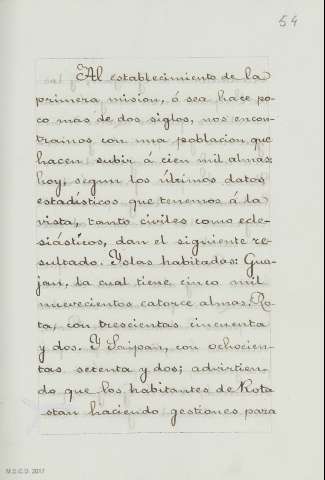 54
Al establecimiento de la
primera mision, ó sea hace po-
co mas de dos siglos, nos encon-
tramos con una poblacion, que
hacen subir á cien mil almas:
hoy, segun los últimos datos
estadísticos que tenemos á la
vista, tanto civiles como ecle-
siásticos, dan el siguiente re-
sultado. Yslas habitadas: Gua-
jan, la cual tiene cinco mil
nuevecientos catorce almas. Ro-
ta, con trescientas cincuenta
y dos. Y Saipan, con ochocien-
tas setenta y dos; advirtien-
do que los habitantes de Rota
stan haciendo gestiones para
M.E.C.D. 2017